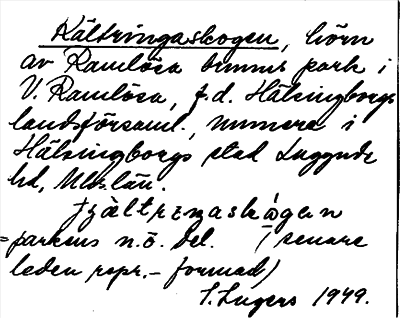 Kältringaskogen, hörn
av Ramlösa brunns park i
V. Ramlösa, f.d. Hälsingborgs
landsförsaml., numera i
Hälsingborgs stad Luggude
hd, Mlm. län.
= parkens n.ö. del. (senare
leden repr. - formad)
S. Ingers 1949.